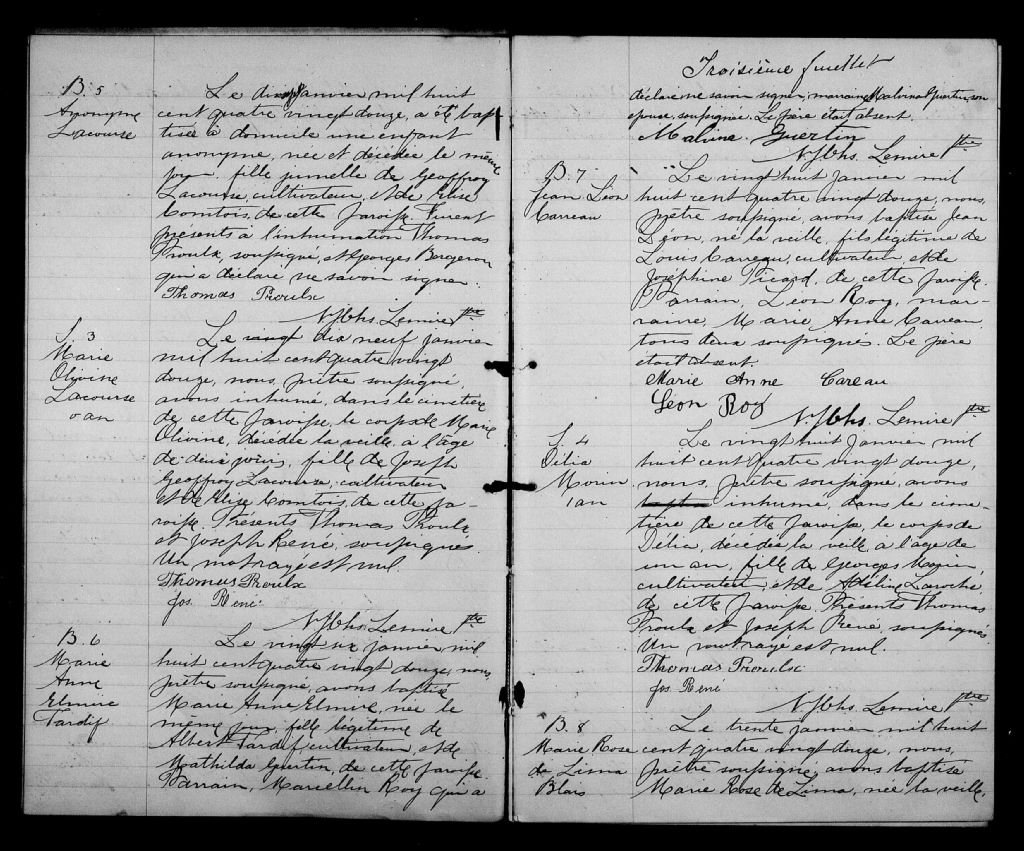 B. 5
Anonyme
Lacourse
Le dix janvier mil huit
cent quatre vingt douze, a été bap
tisée à domicile une enfant
anonyme, née et décédée le même
jour, fille jumelle de Geoffroy
Lacourse, cultivateur, et de Elise
Comtois, de cette paroisse. Furent
présents à l'inhumation Thomas
Proulx, soussigné, et Georges Bergeron
qui a déclaré ne savoir signer.
Thomas Proulx
N. Jbhs. Lemire Ptre
S. 3
Marie
Olivine
Lacourse
0 an
Le vingt dix neuf janvier
mil huit cent quatre vingt
douze, nous, prêtre soussigné,
avons inhumé, dans le cimetière
de cette paroisse, le corps de Marie
Olivine, décédée la veille, à l'âge
de deux jours, fille de Joseph
Geoffroy Lacourse, cultivateur
et de Elise Comtois, de cette pa-
roisse. Présents Thomas Proulx
et Joseph René, soussignés.
Un mot rayé est nul.
Thomas Proulx
Jos. René
N. Jbhs. Lemire Ptre
B. 6
Marie
Anne
Elmire
Tardif
Le vingt six janvier mil
huit cent quatre vingt douze, nous,
prêtre soussigné, avons baptisé
Marie Anne Elmire, née le
même jour, fille légitime de
Albert Tardif, cultivateur, et de
Mathilda Guertin, de cette paroisse.
Parrain, Marcellin Roy qui a
Troisième feuillet
déclaré ne savoir signer, marraine, Malvina Guertin, son
épouse, soussignée. Le père était absent.
Malvina Guertin
N. Jbhs. Lemire Ptre
B. 7
Jean Léon
Carreau
Le vingt huit janvier mil
huit cent quatre vingt douze, nous,
prêtre soussigné, avons baptisé Jean
Léon, né la veille, fils légitime de
Louis Carreau, cultivateur, et de
Joséphine Picard, de cette paroisse.
Parrain, Léon Roy, mar-
raine, Marie Anne Carreau,
tous deux soussignés. Le père
était absent.
Marie Anne Careau
Léon Roy
N. Jbhs. Lemire Ptre
S. 4
Délia
Morin
1 an
Le vingt huit janvier mil
huit cent quatre vingt douze,
nous, prêtre soussigné, avons
inhumé, dans le cime-
tière de cette paroisse, le corps de
Délia, décédée la veille, à l'âge de
un an, fille de Georges Morin,
cultivateur, et de Adéline Laroche,
de cette paroisse. Présents Thomas
Proulx et Joseph René, soussignés.
Un mot rayé est nul.
Thomas Proulx
Jos. René
N. Jbhs. Lemire Ptre
B. 8
Marie Rose
de Lima
Blais
Le trente janvier mil huit
cent quatre vingt douze, nous,
prêtre soussigné, avons baptisé
Marie Rose de Lima, née la veille,